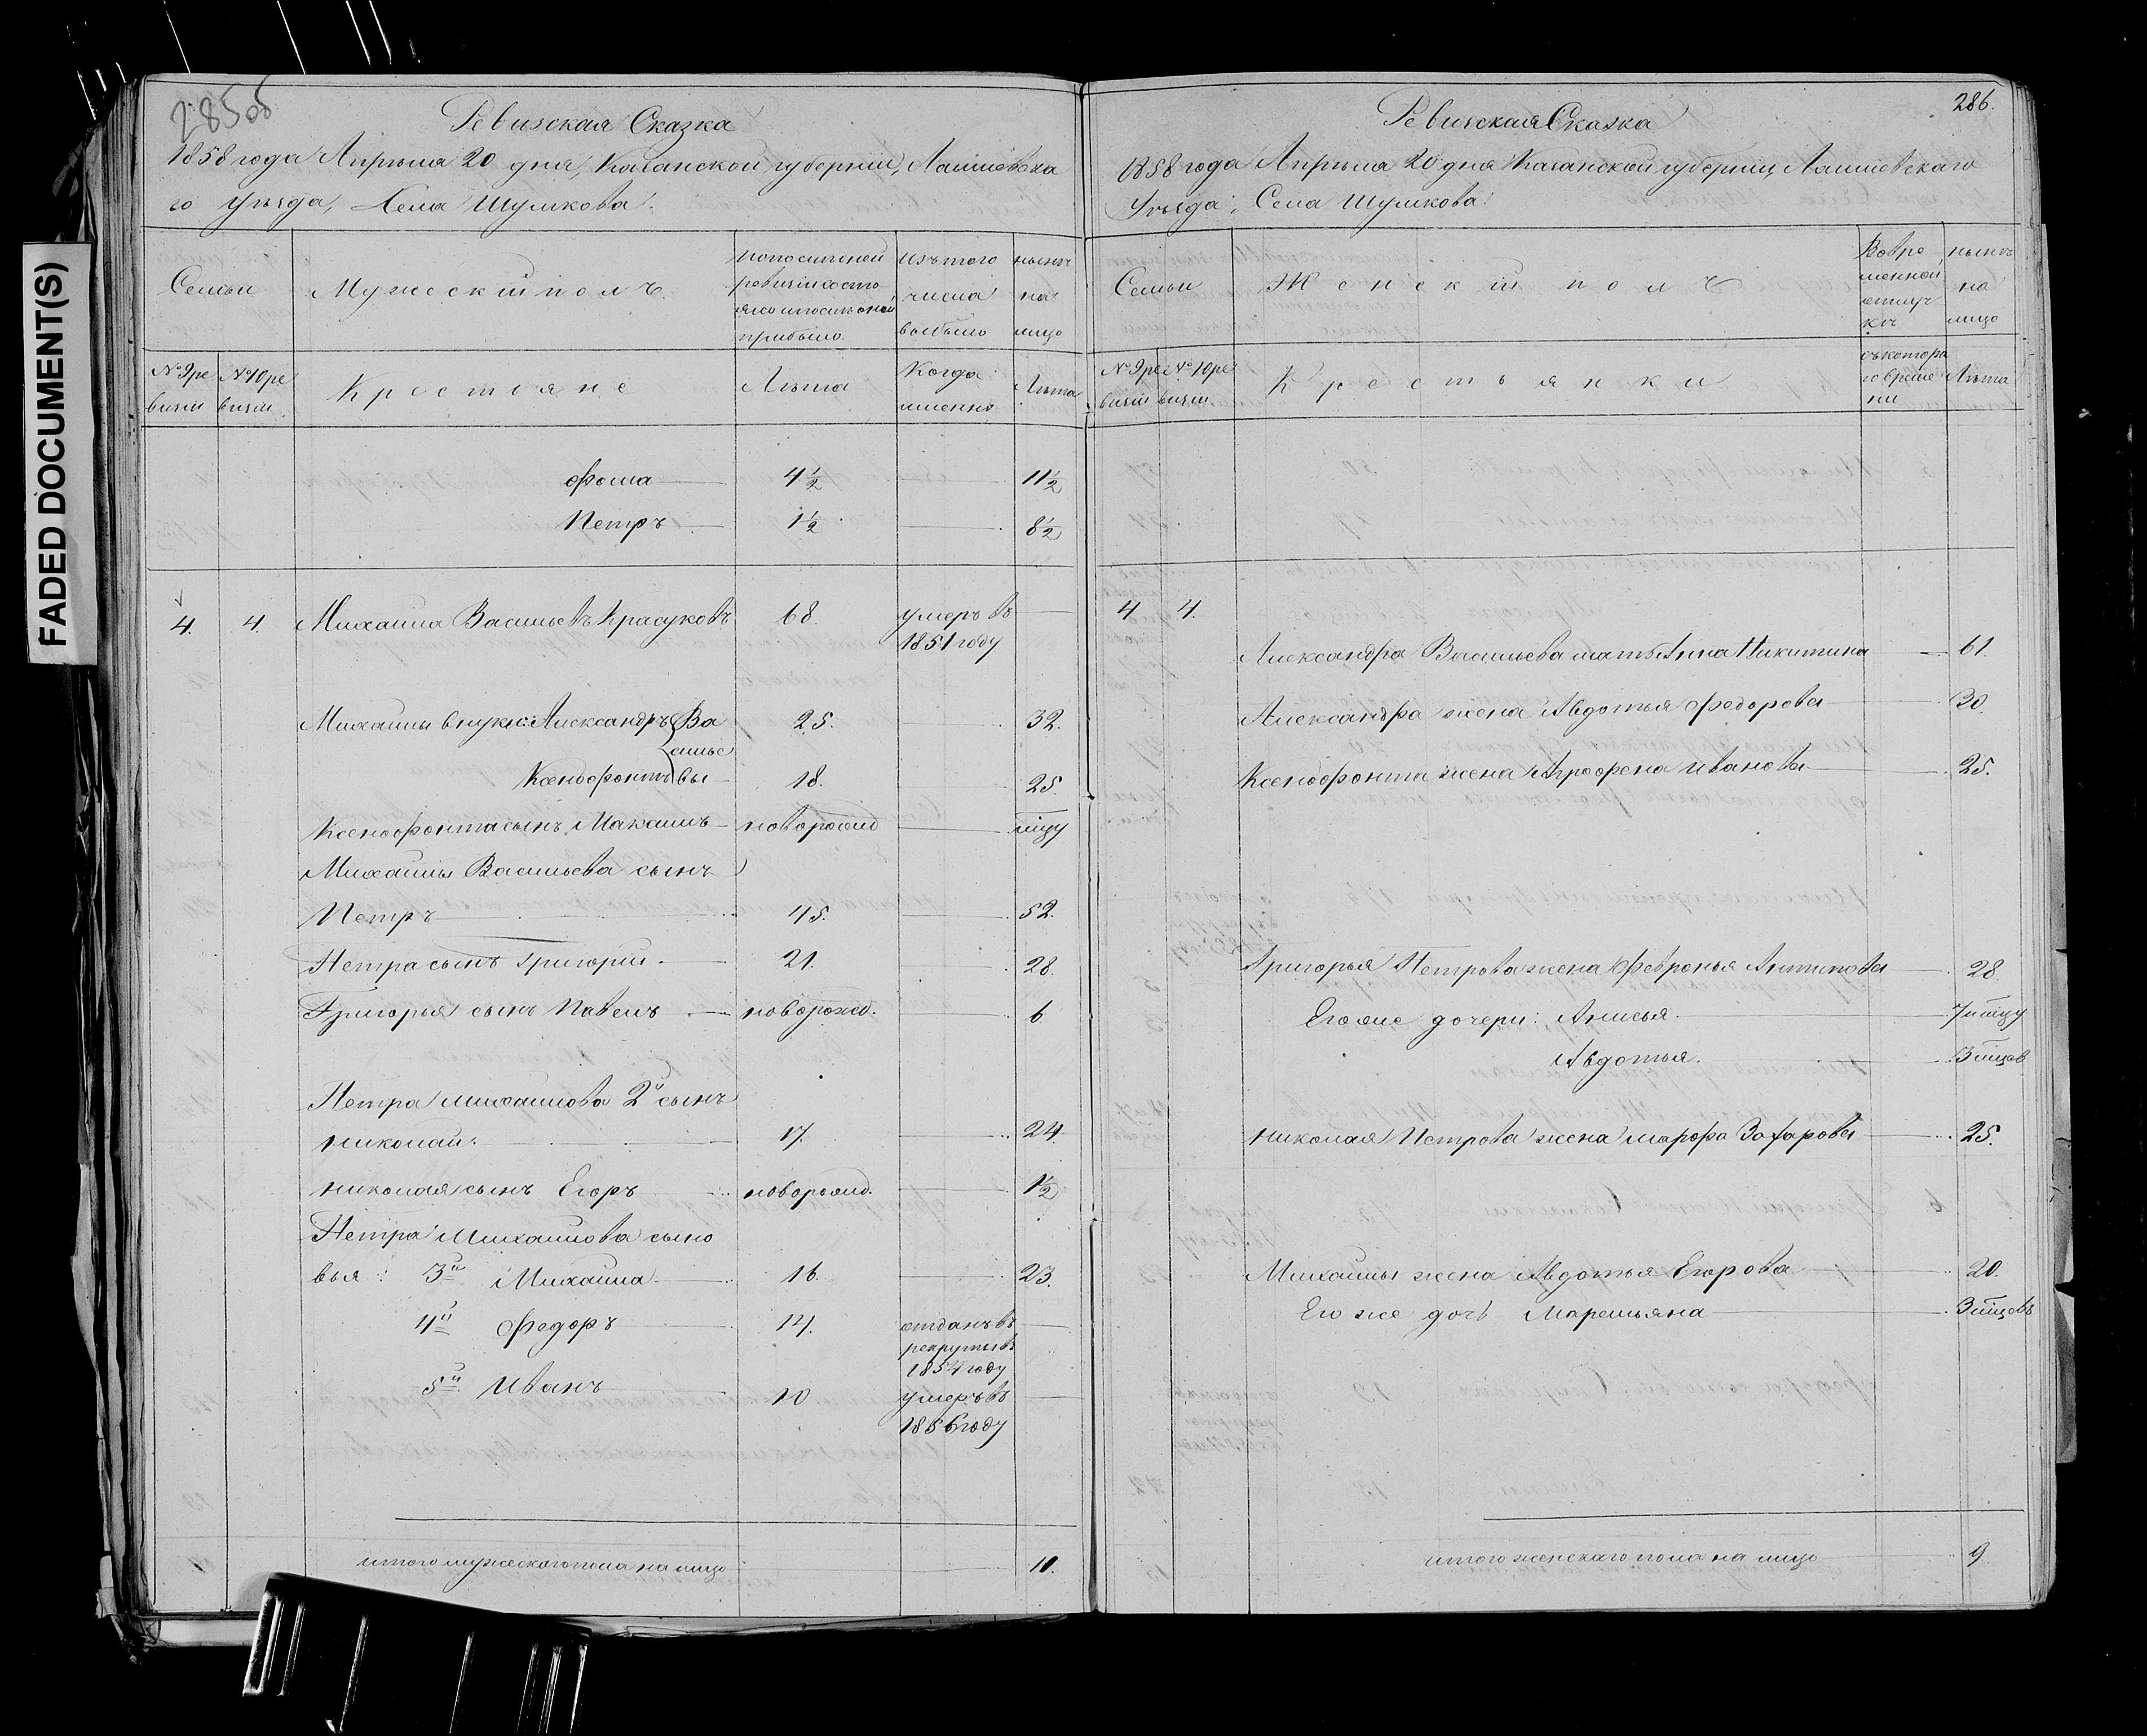 FADED DOCUMENT(S)
285об
Ревизская Сказка
1858 года Апреля 20 дня, Казанской губернии, Лаишевска
го Уезда, Села Шумкова.
Семьи
Мужеский полъ.
по последней
ревизии состо
яло и после оной
прибыло.
изъ того
числа
выбыло
ныне
на
лицо
№ 9 ре
визии
№ 10 ре
визии
Крестьяне
Лета
Когда
именно
Лета
Фома 4½ 11½
Петръ 1½ 8½
4. 4. Михаила Васильевъ Красуковъ 68. умеръ въ
1851 году
Михаилы внуки: Александръ Ва 25. 32.
силье
Ксенофонтъ вы 18. 25.
Ксенофонта сынъ Макаимъ новорожд мцу
Михаилы Васильева сынъ
Петръ 45. 52.
Петра сынъ Григорий 21. 28.
Григорья сынъ Павелъ новорожд. 6
Петра Михаилова 2й сынъ
Николай 17. 24.
Николая сынъ Егоръ новорожд. 1½
Петра Михаилова сыно
вья: 3й Михаила 16. 23.
4й Федоръ 14. отданъ въ
рекруты въ
1854 году
5й Иванъ 10 умеръ въ
1856 году
итого мужескаго пола на лицо 11.
286.
Ревизская Сказка
1858 года Апреля 20 дня Казанской губернии, Лаишевскаго
Уезда, Села Шумкова.
Семьи
Женский полъ
Во вре
менной
отлуч
ке
ныне
на
лицо
№ 9 ре
визии
№ 10 ре
визии
Крестьянки
съ котора
го време
ни
Лета
4 4.
Александра Васильева мать Анна Никитина 61.
Александра жена Авдотья Федорова 30.
Ксенофонта жена Агрофена Иванова 25.
Григорья Петрова жена Февронья Антипова 28.
Его же дочери: Анисья 7и мцу
Авдотья. 3 мцев
Николая Петрова жена Марфа Захарова 25.
Михаилы жена Авдотья Егорова 20.
Его же дочь Маремьяна 3 мцевъ
итого женскаго пола на лицо 9